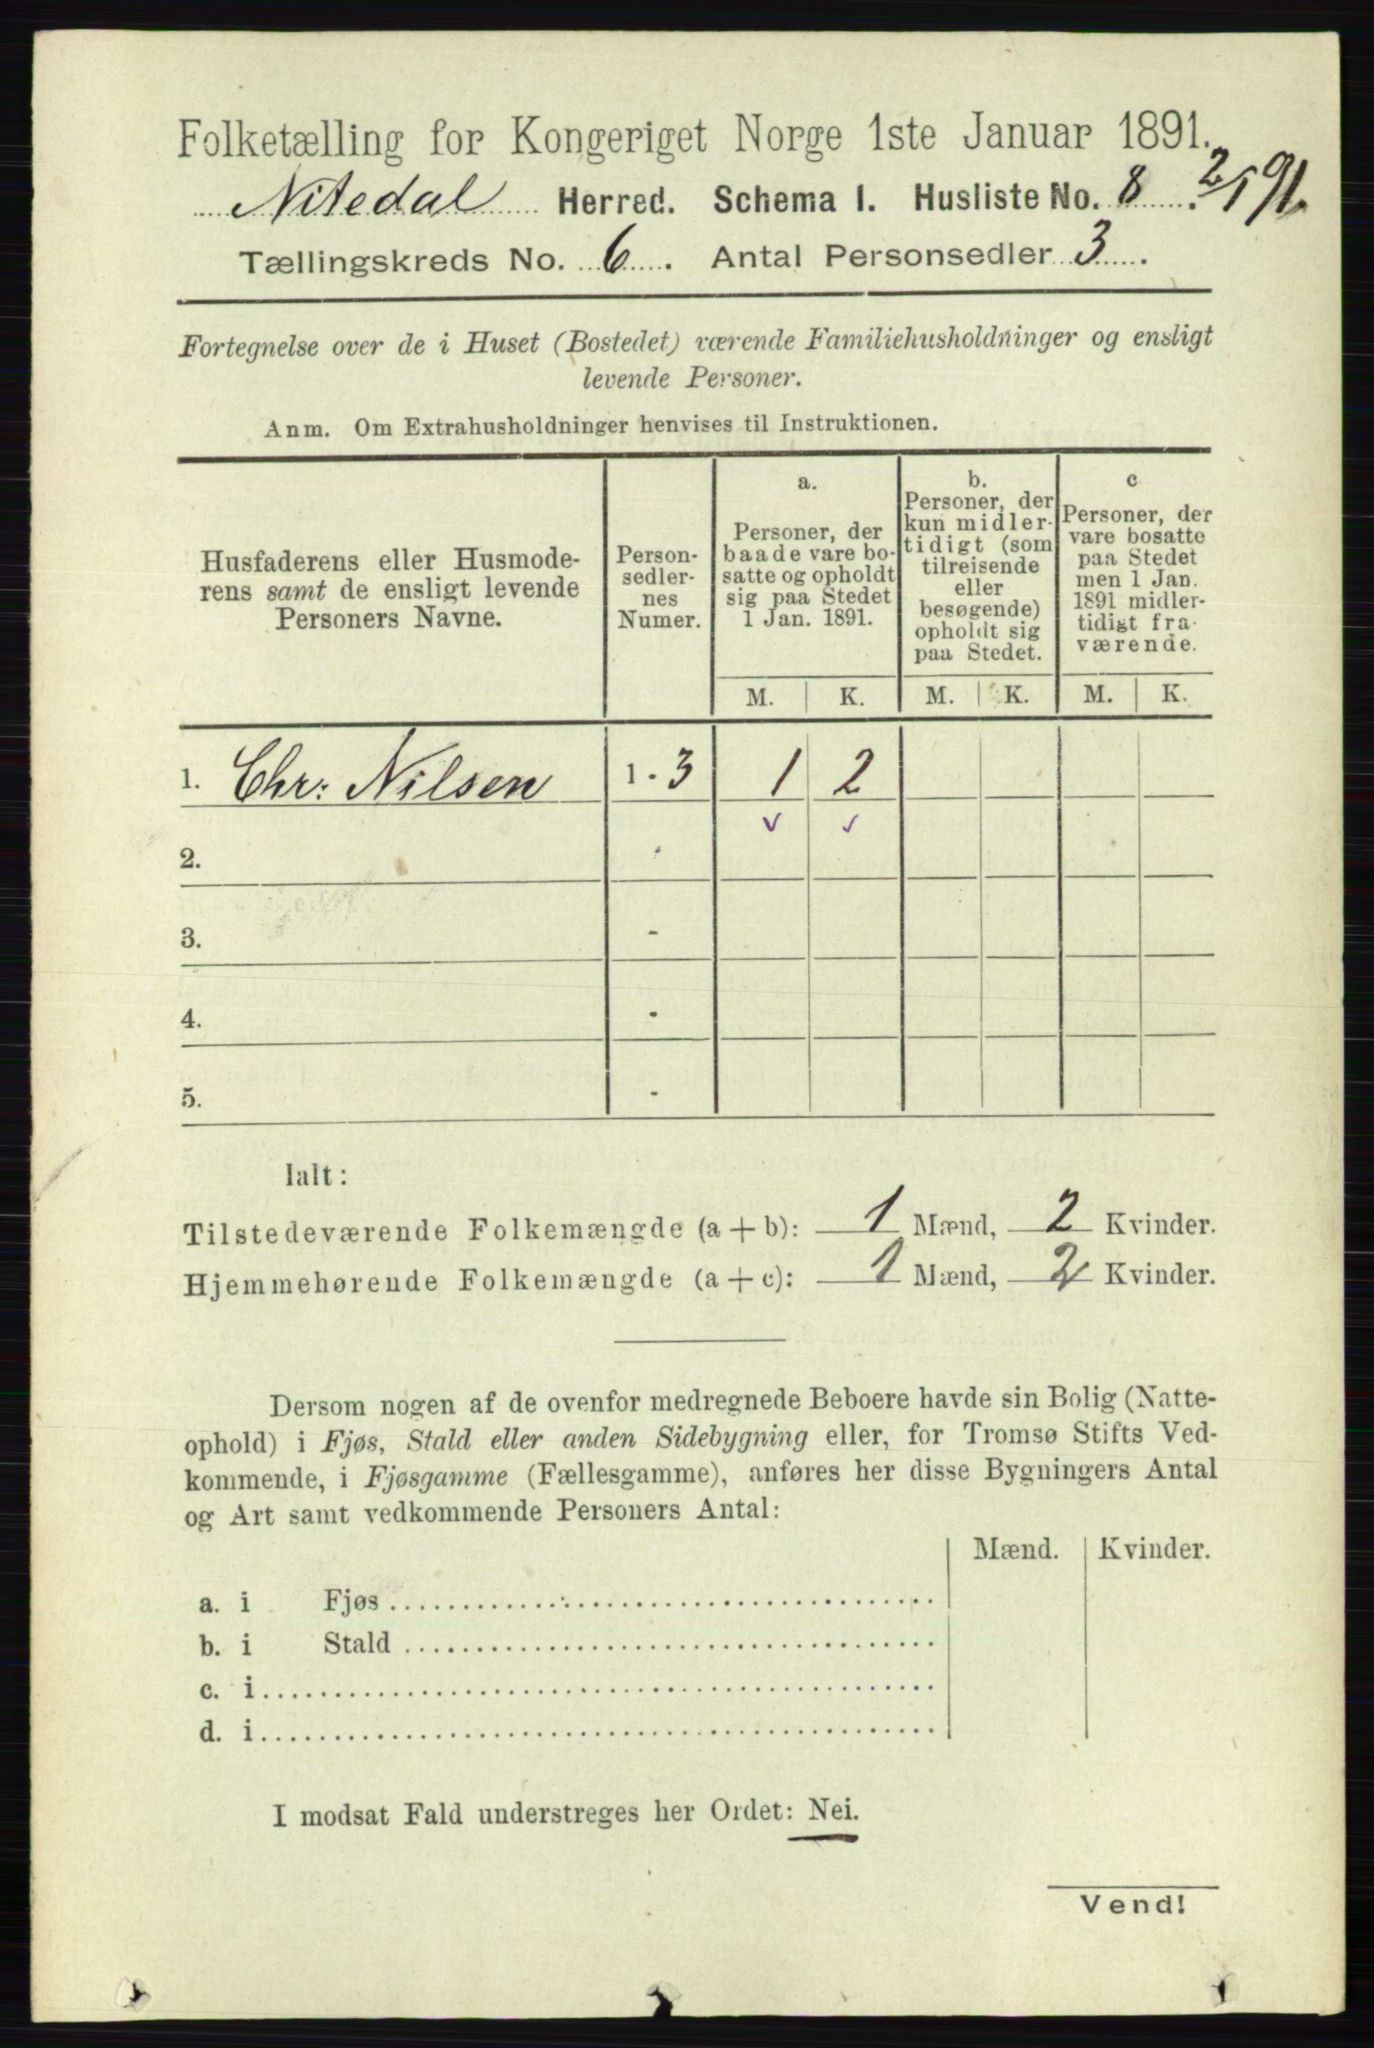 Folketælling for Kongeriget Norge 1ste Januar 1891.
Nitedal Herred. Schema I. Husliste No. 8. 2/1 91.
Tællingskreds No. 6. Antal Personsedler 3.
Fortegnelse over de i Huset (Bostedet) værende Familiehusholdninger og ensligt
levende Personer.
Anm. Om Extrahusholdninger henvises til Instruktionen.
Husfaderens eller Husmode-
rens samt de ensligt levende
Personers Navne.
Person-
sedler-
nes
Numer.
a.
Personer, der
baade vare bo-
satte og opholdt
sig paa Stedet
1 Jan. 1891.
b.
Personer, der
kun midler-
tidigt (som
tilreisende
eller
besøgende)
opholdt sig
paa Stedet.
c
Personer, der
vare bosatte
paa Stedet
men 1 Jan.
1891 midler-
tidigt fra-
værende.
M. K. M. K. M. K.
1. Chr: Nilsen 1 - 3 1 2
2.
3. -
4. -
5. -
Ialt:
Tilstedeværende Folkemængde (a + b): 1 Mænd, 2 Kvinder.
Hjemmehørende Folkemængde (a + c): 1 Mænd, 2 Kvinder.
Dersom nogen af de ovenfor medregnede Beboere havde sin Bolig (Natte-
ophold) i Fjøs, Stald eller anden Sidebygning eller, for Tromsø Stifts Ved-
kommende, i Fjøsgamme (Fællesgamme), anføres her disse Bygningers Antal
og Art samt vedkommende Personers Antal:
Mænd. Kvinder.
a. i Fjøs
b. i Stald
c. i
d. i
I modsat Fald understreges her Ordet: Nei.
Vend!